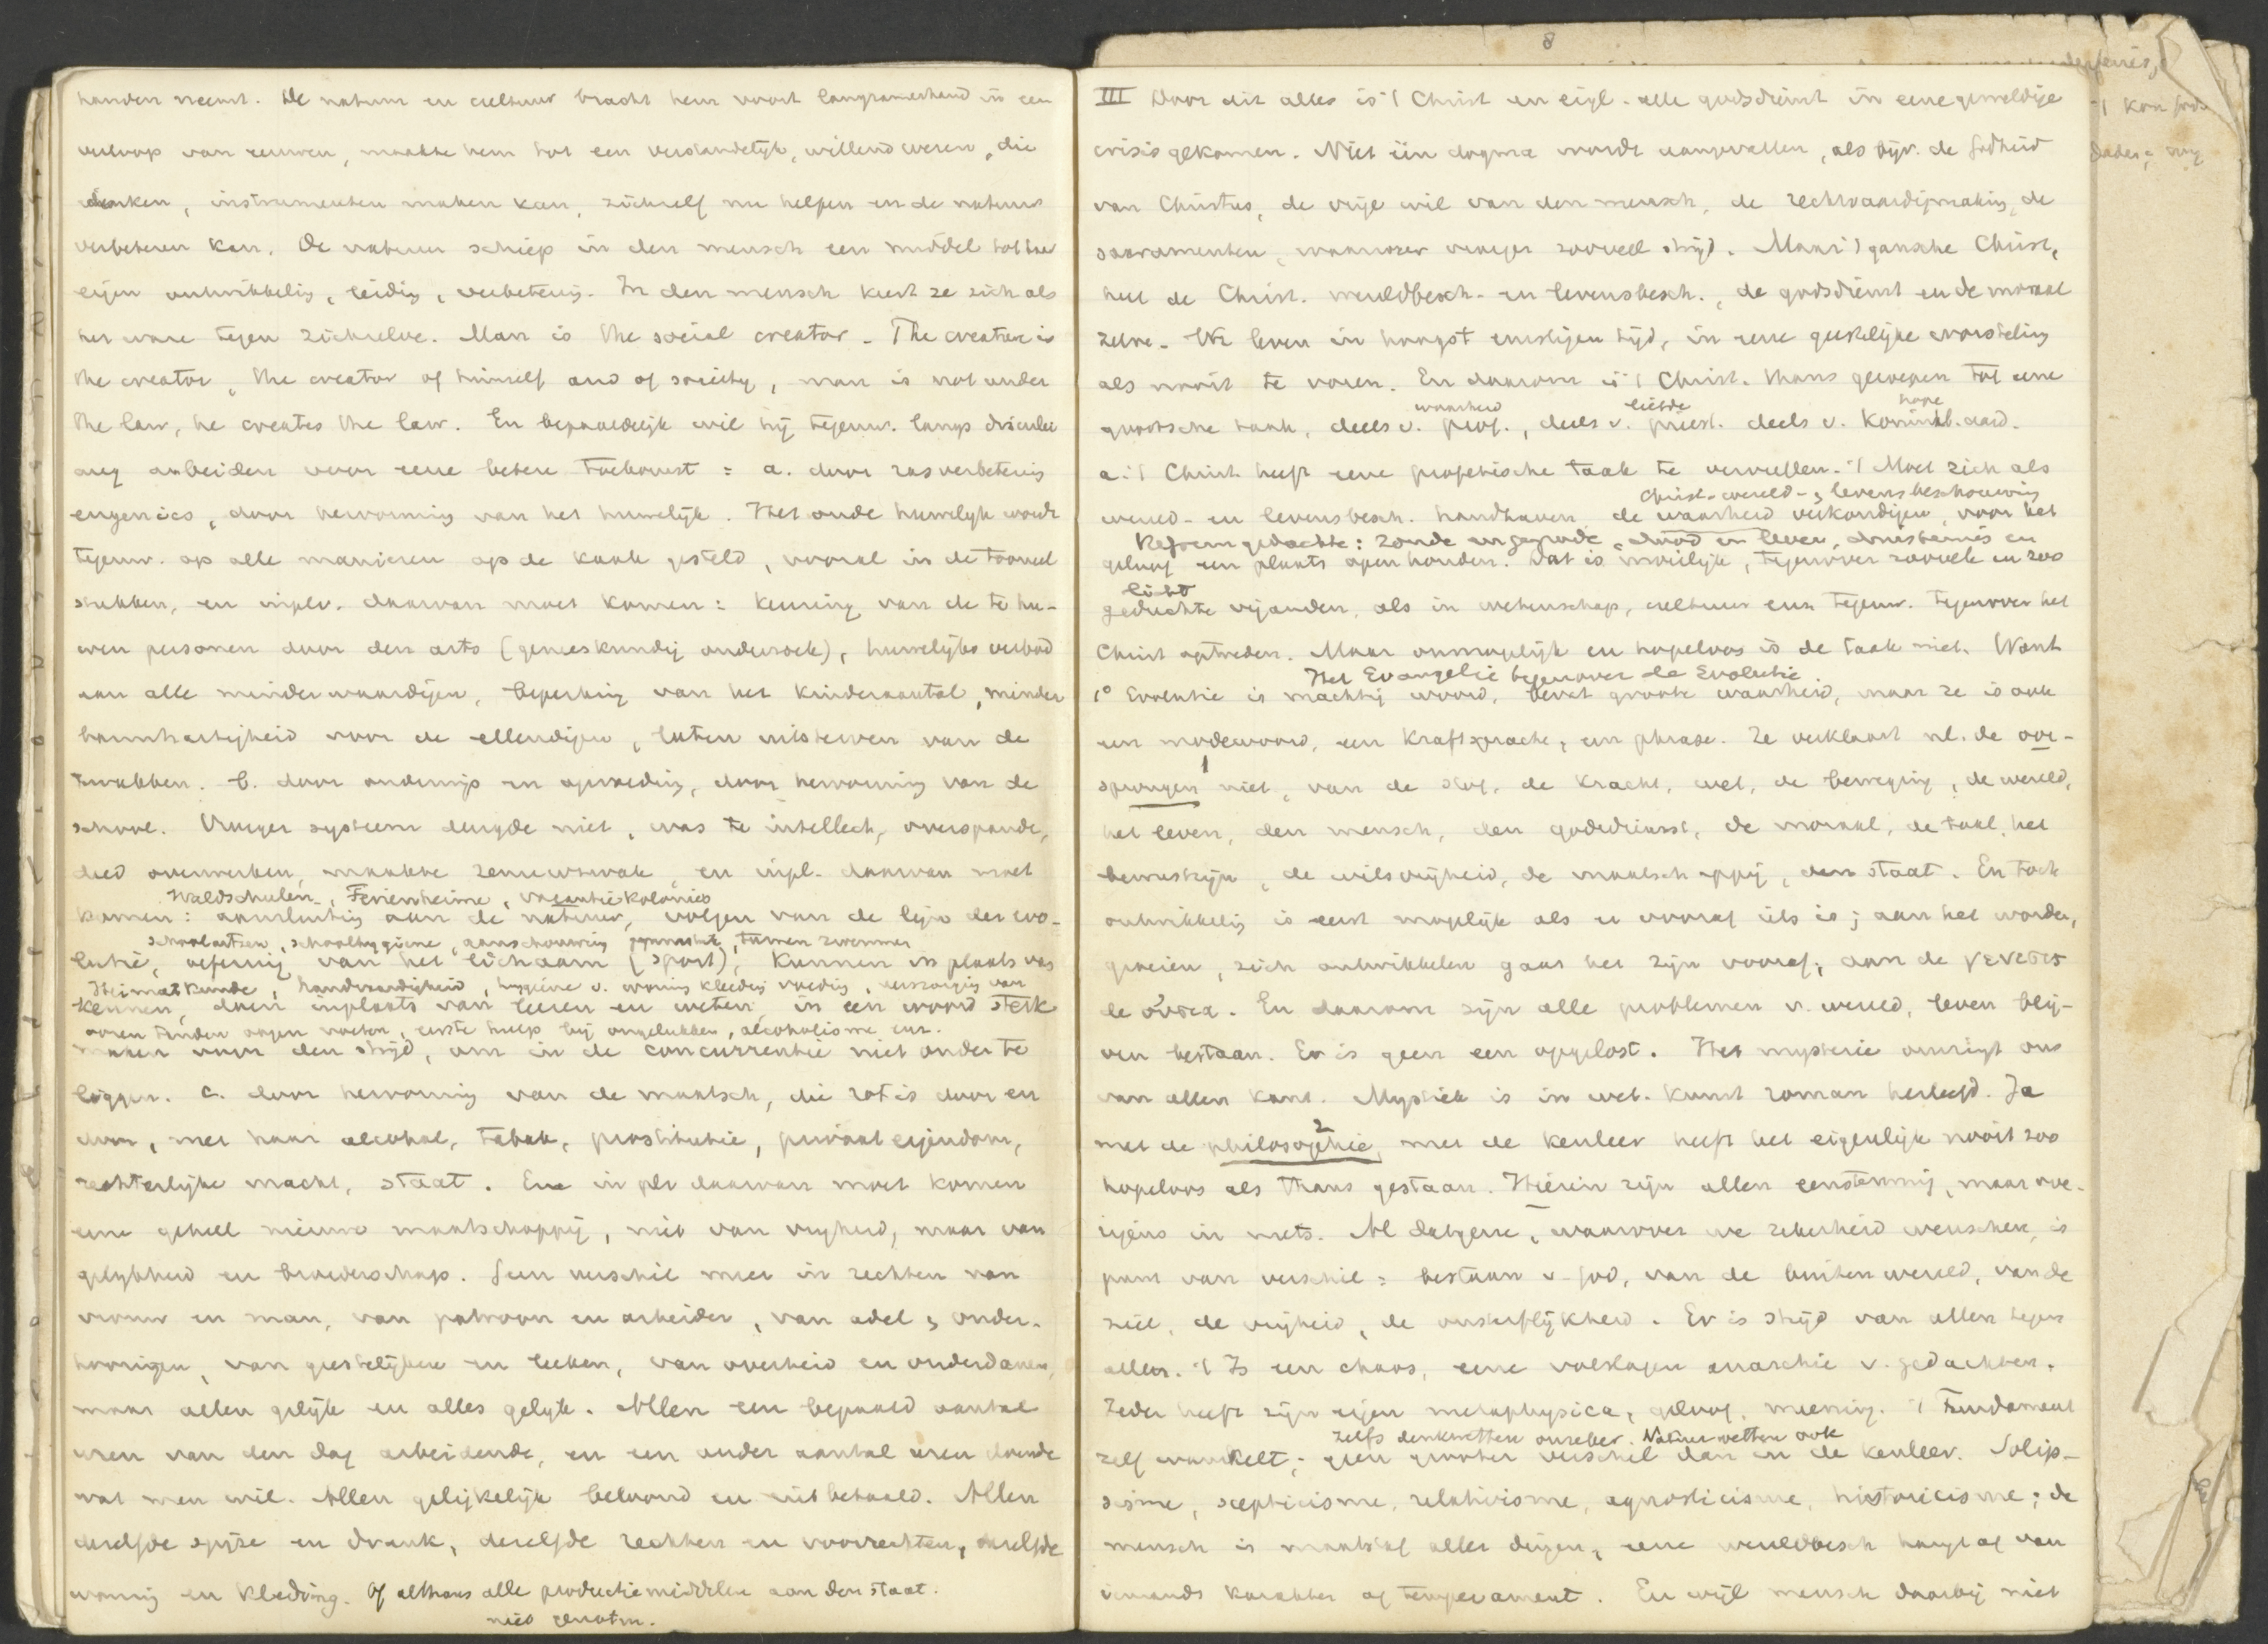 handen neemt. De natuur en cultuur bracht hem voort langzamerhand in een
verloop van eeuwen, maakte hem tot een verstandelijk, willend wezen, die
denken, instrumenten maken kan, zichzelf nu helpen en de natuur
verbeteren kan. De natuur schiep in den mensch een middel tot haar
eigen ontwikkelig, leidig, verbeterig. In den mensch keert ze zich als
het ware tegen zichzelve. Man is the social creator. The creature is
the creator, the creator of himself and of society, man is not under
the law, he creates the law. En bepaaldelijk wil hij tegenw. langs drieërlei
weg arbeiden voor eene betere toekomst: a. door rasverbeterig
eugenics, door hervormig van het huwelijk. Het oude huwelijk wordt
tegenw. op alle manieren op de kaak gesteld, vooral in de tooneel
stukken, en inplv. daarvan moet komen: keuring van de te hu-
wen personen door den arts (geneeskundig onderzoek), huwelijks verbod
aan alle minderwaardigen, beperking van het kinderaantal, minder
barmhartigheid voor de ellendigen, laten uitsterven van de
zwakken. b. door onderwijs en opvoeding, door hervorming van de
school. Vroeger systeem deugde niet, was te intellect, overspande,
deed overwerken, maakte zenuwzwak, en inpl. daarvan moet
Waldschulen, Ferienheime, vacantiekolonies
komen: aansluitig aan de natuur, volgen van de lijn der evo-
schoolartsen, schoolhygiene, aanschouwing gymnastiek, turnen zwemmen
lutie, oefenig van het lichaam (sport), kunnen in plaats van
Heimatkunde, handvaardigheid, hygiene v. woning kleeding voeding, verzorging van
kennen, doen inplaats van leeren en weten, in een woord sterk
ooren tanden oogen voeten, eerste hulp bij ongelukken, alcoholisme enz.
maken voor den strijd, om in de concurrentie niet onder te
liggen. c. door hervormig van de maatsch, die rot is door en
door, met haar alcohol, tabak, prostitutie, privaat eigendom,
rechterlijke macht, staat. En in plv daarvan moet komen
eene geheel nieuwe maatschappij, niet van vrijheid, maar van
gelijkheid en broederschap. Geen verschil meer in rechten van
vrouw en man, van patroon en arbeider, van adel en onder-
hoorigen, van geestelijken en leeken, van overheid en onderdanen,
maar allen gelijk en alles gelijk. Allen een bepaald aantal
uren van den dag arbeidende, en een ander aantal uren doende
wat men wil. Allen gelijkelijk beloond en uitbetaald. Allen
dezelfde spijze en drank, dezelfde rechten en voorrechten, dezelfde
woning en kleeding. Of althans alle productiemiddelen aan den staat.
niet genoten.
8
III Door dit alles is 't Christ en eigl. alle godsdienst in eene geweldige
crisis gekomen. Niet één dogma wordt aangevallen, als bijv. de Godheid
van Christus, de vrije wil van den mensch, de rechtvaardigmaking, de
sacramenten, waarover vroeger zooveel strijd. Maar 't gansche Christ,
heel de Christ. wereldbesch. en levensbesch., de godsdienst en de moraal
zelve. We leven in hoogst ernstigen tijd, in eene geestelijke worsteling
als nooit te voren. En daarom is 't Christ. thans geroepen tot eene
waarheid liefde hope
grootsche taak, deels v. prof., deels v. priest. deels v. koninkl. aard.
a. 't Christ. heeft eene profetische taak te vervullen. 't Moet zich als
Christ. wereld- en levensbeschouwing
wereld- en levensbesch. handhaven, de waarheid verkondigen, voor het
Reformgedachte: zonde en genade, dood en leven, duisternis en
geloof een plaats open houden. Dat is moeilijk, tegenover zoovele en zoo
licht
geduchte vijanden, als in wetenschap, cultuur enz. tegenw. tegenover het
Christ optreden. Maar onmogelijk en hopeloos is de taak niet. Want
Het Evangelie tegenover de Evolutie.
1° Evolutie is machtig woord, bevat groote waarheid, maar ze is ook
een modewoord, een Kraftsprache, een phrase. Ze verklaart nl. de oor-
1
sprongen niet, van de stof, de kracht, wet, de beweging, de wereld,
het leven, den mensch, den godsdienst, de moraal, de taal, het
bewustzijn, de wilsvrijheid, de maatschappij, den staat. En toch
ontwikkelig is eerst mogelijk als er vooraf iets is; aan het worden,
groeien, zich ontwikkelen gaat het zijn vooraf; aan de γενεσις
de οὐσια. En daarom zijn alle problemen v. wereld, leven blij-
ven bestaan. Er is geen een opgelost. Het mysterie omringt ons
van allen kant. Mystiek is in wet. kunst roman herleefd. Ja
2
met de philosophie, met de kenleer heeft het eigenlijk nooit zoo
hopeloos als thans gestaan. Hierin zijn allen eenstemmig, maar ove-
rigens in niets. Al datgene, waarover we zekerheid wenschen, is
punt van verschil: bestaan v. God, van de buitenwereld, van de
ziel, de vrijheid, de onsterflijkheid. Er is strijd van allen tegen
allen. 't Is een chaos, eene volslagen anarchie v. gedachten.
Ieder heeft zijn eigen metaphysica, geloof, meening. 't Fundament
zelfs denkwetten onzeker. Natuurwetten ook
zelf wankelt; geen grooter verschil dan in de kenleer. Solip-
sisme, scepticisme, relativisme, agnosticisme, historicisme; de
mensch is maatstaf aller dingen, eene wereldbesch hangt af van
iemands karakter of temperament. En wijl mensch daarbij niet